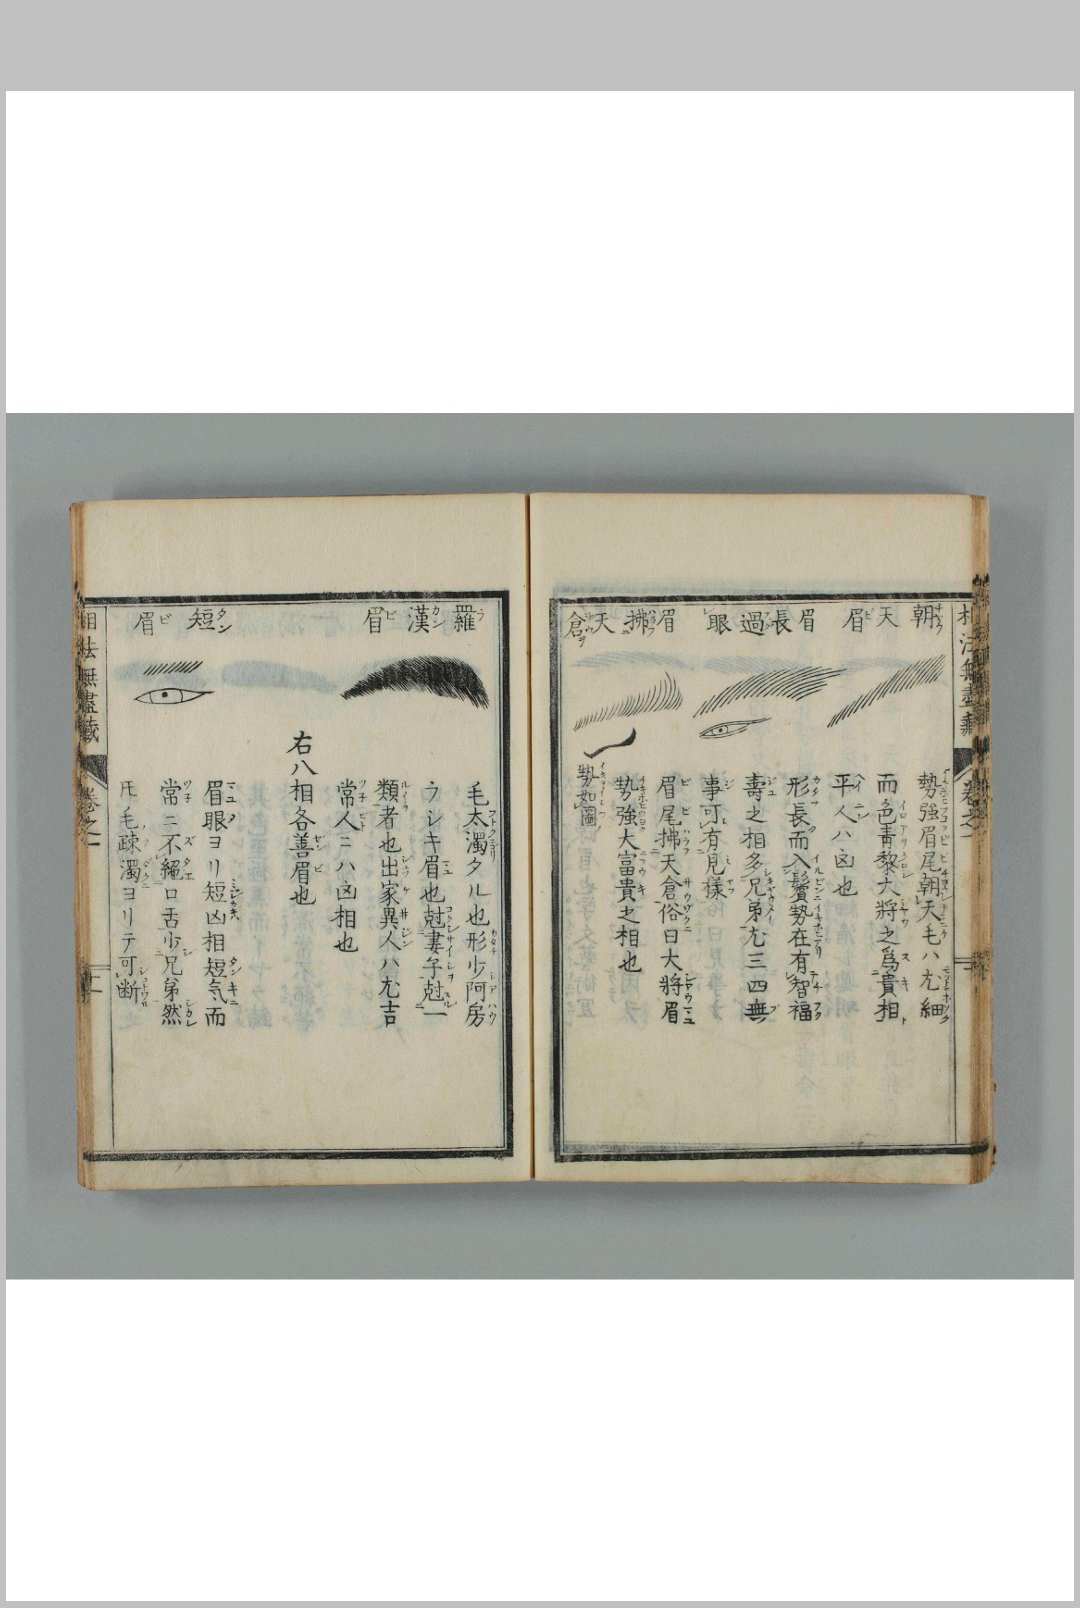 相法無盡藏 卷之一
朝天眉
勢強眉尾朝天毛ハ尤細
而色青黎大將之爲貴相
平人ハ凶也
眉長過眼
形長而入鬢勢在有智福
壽之相多兄弟尤三四無
事可有見樣
眉拂天倉
眉尾拂天倉俗曰大將眉
勢強大富貴之相也
勢如圖
羅漢眉
毛太濁タル也形少阿房
ラシキ眉也尅妻子尅一
類者也出家異人ハ尤吉
常人ニハ凶相也
右八相各善眉也
短眉
眉眼ヨリ短凶相短気而
常ニ不絕口舌少兄弟然
𪜈毛疎濁ヨリテ可断
相法無盡藏 卷之一